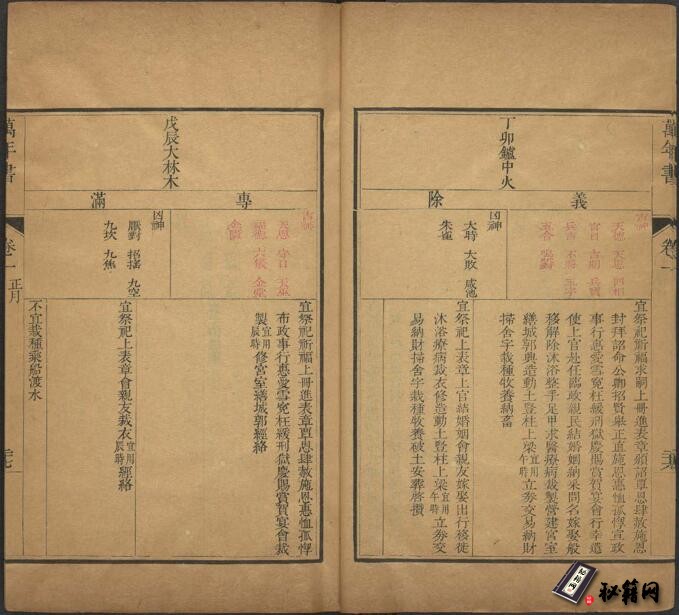 萬年書
卷一
丁卯鑪中火
義
除
吉神
天德 天恩 四相
官日 吉期
兵吉 不將
五合 鳴吠
凶神
大時 大敗 咸池
朱雀
宜祭祀祈福求嗣上冊進表章頒詔覃恩肆赦施恩
封拜詔命公卿招賢舉正直施恩惠恤孤惸宣政
事行惠愛雪冤枉緩刑獄慶賜賞賀宴會行幸遣
使上官赴任臨政親民結婚姻納采問名嫁娶般
移解除沐浴整手足甲求醫療病裁製營建宮室
繕城郭興造動土豎柱上梁宜用午時立券交易納財
掃舍宇栽種牧養納畜
宜祭祀上表章上官結婚姻會親友嫁娶出行移徙
沐浴療病裁衣修造動土豎柱上梁宜用午時立券交
易納財掃舍宇栽種牧養破土安葬啓攢
戊辰大林木
專
滿
吉神
天恩 守日 天巫
福德 六儀 金堂
金匱
凶神
厭對 招搖 九空
九坎 九焦
宜祭祀祈福上冊進表章覃恩肆赦施恩惠恤孤惸
布政事行惠愛雪冤枉緩刑獄慶賜賞賀宴會裁
製宜用辰時修宮室繕城郭經絡
宜祭祀上表章會親友裁衣宜用辰時經絡
不宜栽種乘船渡水
萬年書
卷一
正月
秘籍网
秘籍网